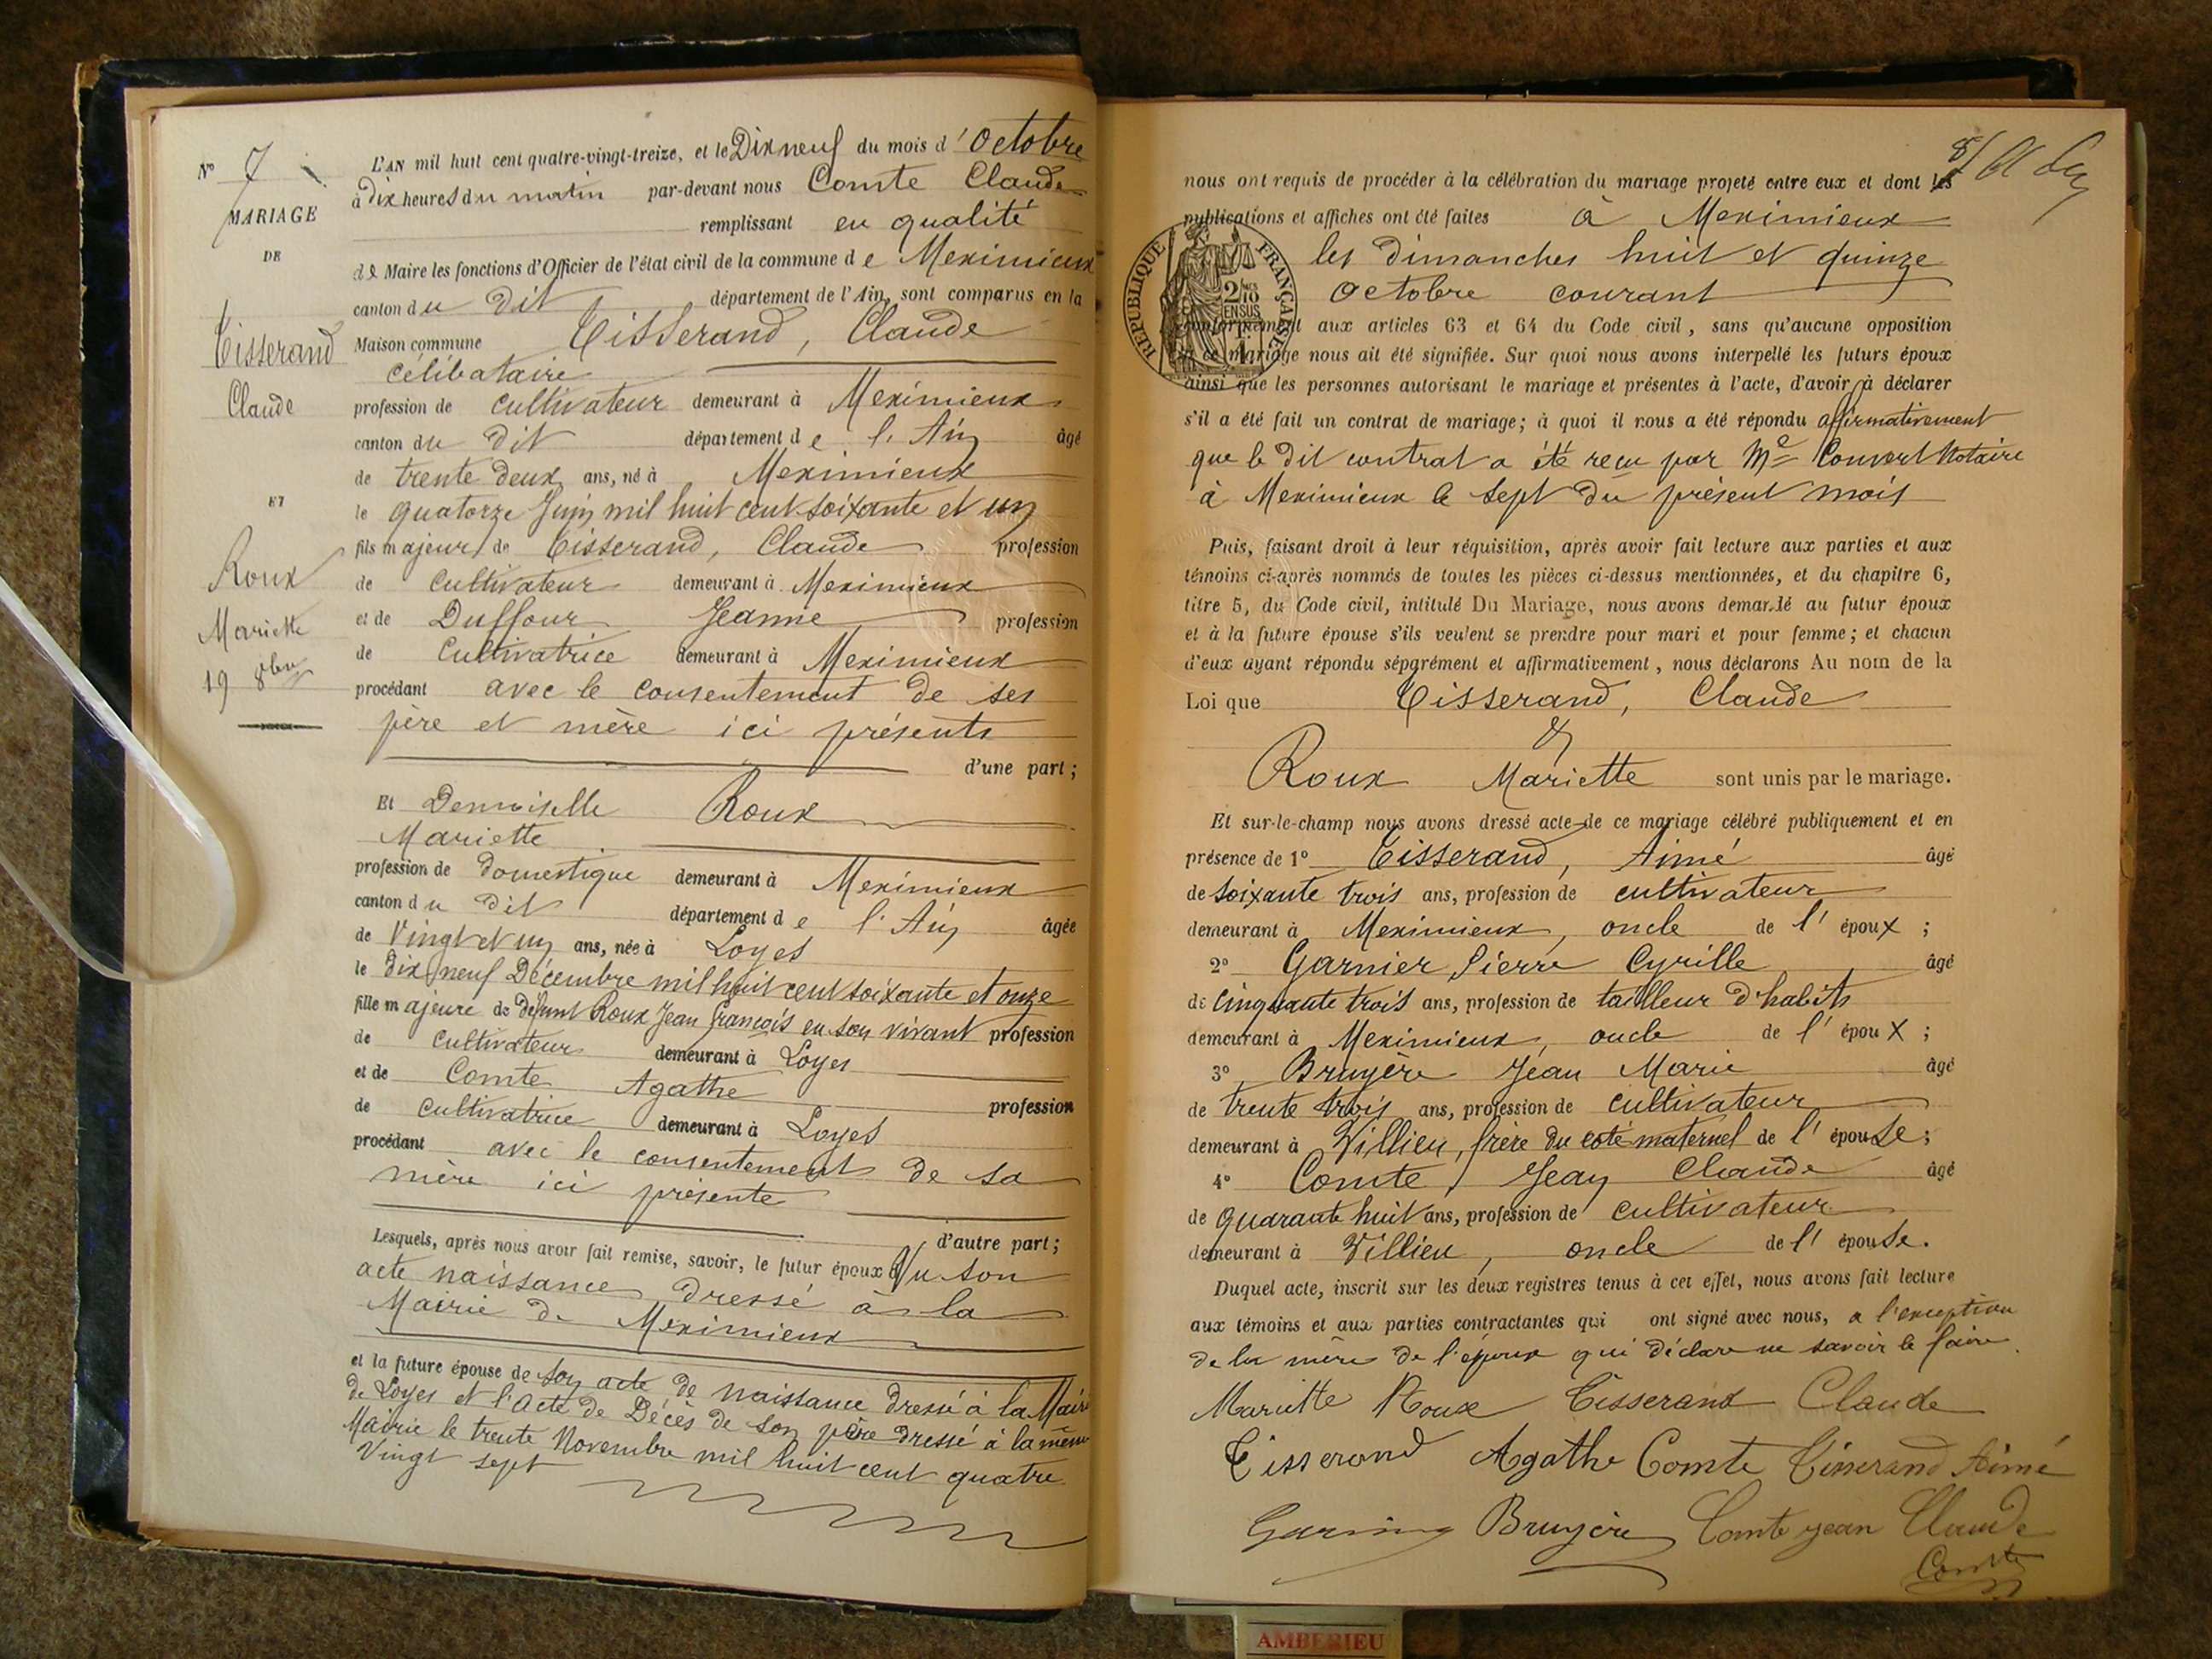 N° 7
MARIAGE
DE
Tisserand
Claude
ET
Roux
Mariette
19 8bre
L'AN mil huit cent quatre-vingt-treize, et le Dix neuf du mois d'Octobre
à dix heures du matin par-devant nous Comte Claude
remplissant en qualité
de Maire les fonctions d'Officier de l'état civil de la commune de Meximieux
canton du dit département de l'Ain, sont comparus en la
Maison commune Tisserand, Claude
célibataire
profession de cultivateur demeurant à Meximieux
canton du dit département de l'Ain âgé
de trente deux ans, né à Meximieux
le quatorze Juin mil huit cent soixante et un
fils majeur de Tisserand, Claude profession
de cultivateur demeurant à Meximieux
et de Duffour Jeanne profession
de Cultivatrice demeurant à Meximieux
procédant avec le consentement de ses
père et mère ici présents
d'une part ;
Et Demoiselle Roux
Mariette
profession de domestique demeurant à Meximieux
canton du dit département de l'Ain âgée
de Vingt et un ans, née à Loyes
le dix neuf Décembre mil huit cent soixante et onze
fille majeure de défunt Roux Jean françois en son vivant profession
de cultivateur demeurant à Loyes
et de Comte Agathe profession
de cultivatrice demeurant à Loyes
procédant avec le consentement de sa
mère ici présente
d'autre part ;
Lesquels, après nous avoir fait remise, savoir, le futur époux du son
acte naissance dressé à la
Mairie de Meximieux
et la future épouse de son acte de naissance dressé à la Mairie
de Loyes et l'acte de Décès de son père dressé à la même
Mairie le trente Novembre mil huit cent quatre
Vingt sept
8/
nous ont requis de procéder à la célébration du mariage projeté entre eux et dont les
publications et affiches ont été faites à Meximieux
les dimanches huit et quinze
Octobre courant
RÉPUBLIQUE FRANÇAISE
2/10 EN SUS
conformément aux articles 63 et 64 du Code civil, sans qu'aucune opposition
à ce mariage nous ait été signifiée. Sur quoi nous avons interpellé les futurs époux
ainsi que les personnes autorisant le mariage et présentes à l'acte, d'avoir à déclarer
s'il a été fait un contrat de mariage; à quoi il nous a été répondu affirmativement
que le dit contrat a été reçu par Me Convert Notaire
à Meximieux le sept du présent mois
Puis, faisant droit à leur réquisition, après avoir fait lecture aux parties et aux
témoins ci-après nommés de toutes les pièces ci-dessus mentionnées, et du chapitre 6,
titre 5, du Code civil, intitulé Du Mariage, nous avons demandé au futur époux
et à la future épouse s'ils veulent se prendre pour mari et pour femme; et chacun
d'eux ayant répondu séparément et affirmativement, nous déclarons Au nom de la
Loi que Tisserand, Claude
&
Roux Mariette sont unis par le mariage.
Et sur-le-champ nous avons dressé acte de ce mariage célébré publiquement et en
présence de 1° Tisserand, Aimé âgé
de soixante trois ans, profession de cultivateur
demeurant à Meximieux, oncle de l'époux ;
2° Garnier Pierre Cyrille âgé
de Cinquante trois ans, profession de tailleur d'habits
demeurant à Meximieux, oncle de l'époux ;
3° Bruyère Jean Marie âgé
de trente trois ans, profession de cultivateur
demeurant à Villieu, frère du coté maternel de l'épouse ;
4° Comte, Jean Claude âgé
de quarante huit ans, profession de cultivateur
demeurant à Villieu, oncle de l'épouse.
Duquel acte, inscrit sur les deux registres tenus à cet effet, nous avons fait lecture
aux témoins et aux parties contractantes qui ont signé avec nous, a l'exception
de la mère de l'époux qui déclare ne savoir le faire.
Mariette Roux Tisserand Claude
Tisserand Agathe Comte Tisserand Aimé
Garnier Bruyère Comte jean Claude
Comte
AMBERIEU